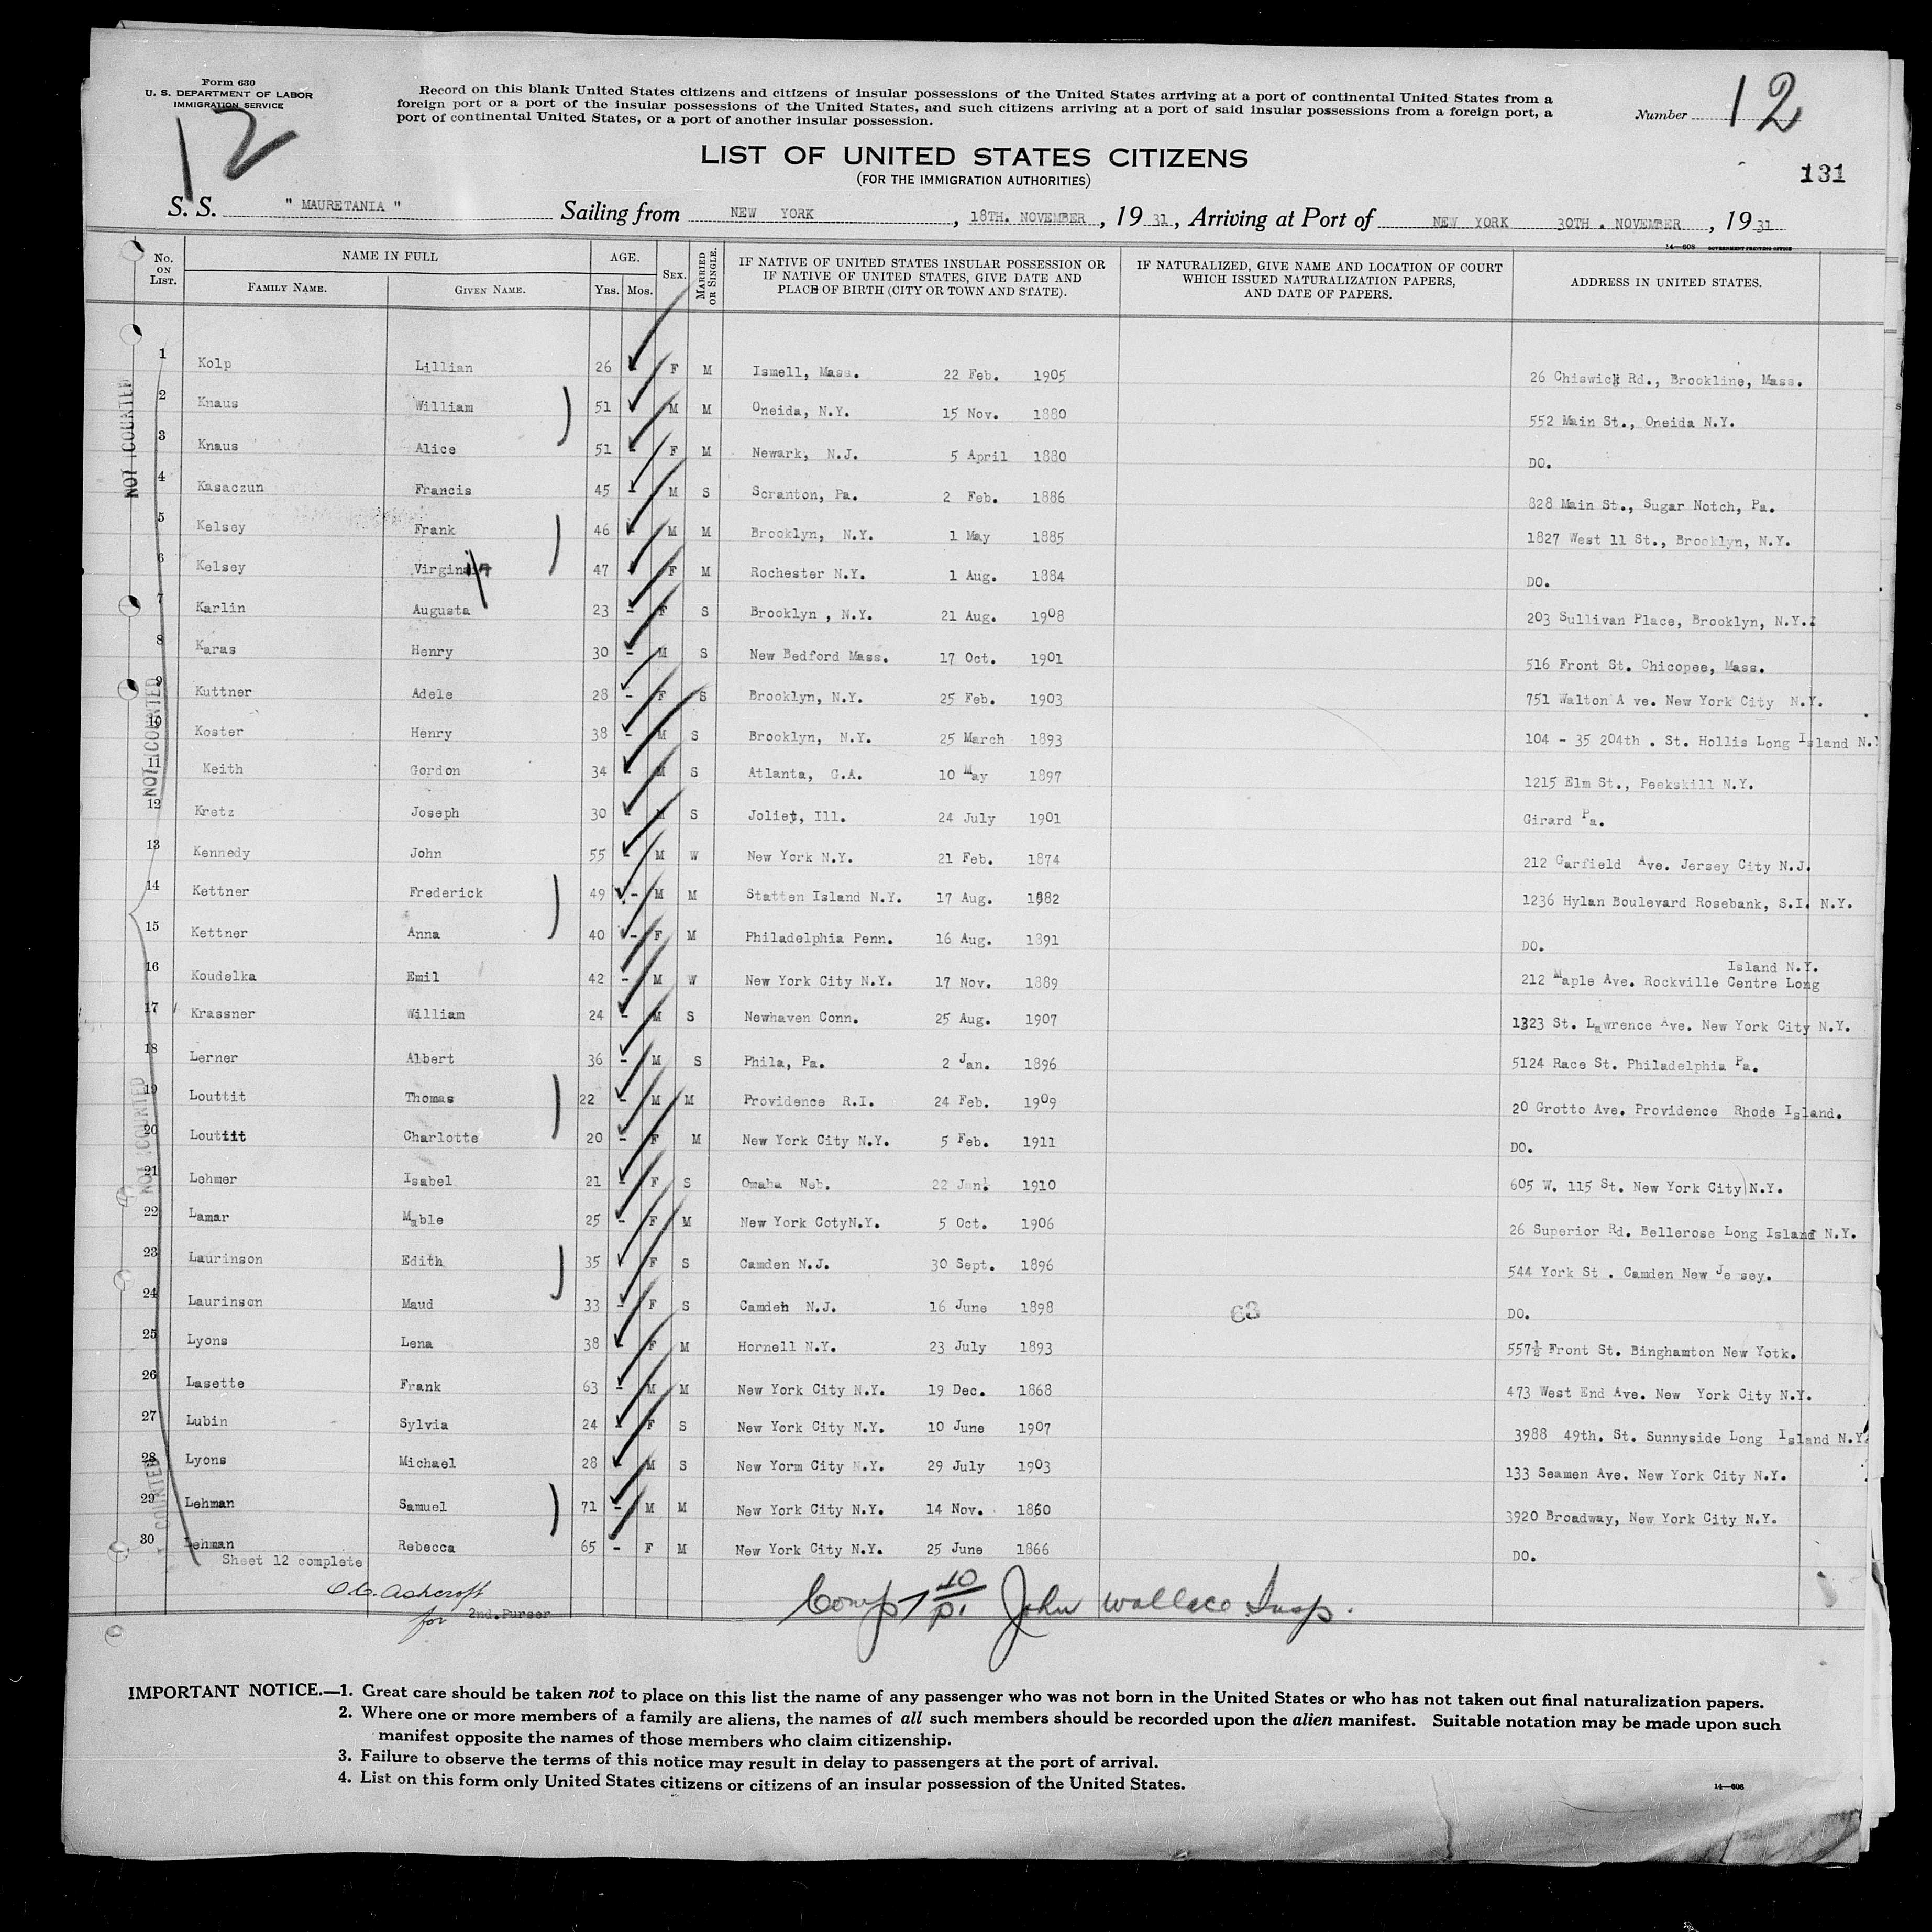 Form 630
U. S. DEPARTMENT OF LABOR
IMMIGRATION SERVICE
12
Record on this blank United States citizens and citizens of insular possessions of the United States arriving at a port of continental United States from a
foreign port or a port of the insular possessions of the United States, and such citizens arriving at a port of said insular possessions from a foreign port, a
port of continental United States, or a port of another insular possession.
Number 12
LIST OF UNITED STATES CITIZENS
(FOR THE IMMIGRATION AUTHORITIES)
131
S. S. " MAURETANIA " Sailing from NEW YORK, 18TH. NOVEMBER, 1931, Arriving at Port of NEW YORK 30TH. NOVEMBER, 1931
14—608 GOVERNMENT PRINTING OFFICE
No. ON LIST. NAME IN FULL FAMILY NAME. GIVEN NAME. AGE. YRS. MOS. SEX. MARRIED OR SINGLE. IF NATIVE OF UNITED STATES INSULAR POSSESSION OR IF NATIVE OF UNITED STATES, GIVE DATE AND PLACE OF BIRTH (CITY OR TOWN AND STATE). IF NATURALIZED, GIVE NAME AND LOCATION OF COURT WHICH ISSUED NATURALIZATION PAPERS, AND DATE OF PAPERS. ADDRESS IN UNITED STATES.
1 Kolp Lillian 26 F M Ismell, Mass. 22 Feb. 1905 26 Chiswick Rd., Brookline, Mass.
2 Knaus William 51 M M Oneida, N.Y. 15 Nov. 1880 552 Main St., Oneida N.Y.
3 Knaus Alice 51 F M Newark, N.J. 5 April 1880 DO.
4 Kasaczun Francis 45 - M S Scranton, Pa. 2 Feb. 1886 828 Main St., Sugar Notch, Pa.
5 Kelsey Frank 46 M M Brooklyn, N.Y. 1 May 1885 1827 West 11 St., Brooklyn, N.Y.
6 Kelsey Virginia 47 F M Rochester N.Y. 1 Aug. 1884 DO.
7 Karlin Augusta 23 - F S Brooklyn , N.Y. 21 Aug. 1908 203 Sullivan Place, Brooklyn, N.Y.
8 Karas Henry 30 - M S New Bedford Mass. 17 Oct. 1901 516 Front St. Chicopee, Mass.
9 Kuttner Adele 28 - F S Brooklyn, N.Y. 25 Feb. 1903 751 Walton A ve. New York City N.Y.
10 Koster Henry 38 - M S Brooklyn, N.Y. 25 March 1893 104 - 35 204th . St. Hollis Long Island N.Y
11 Keith Gordon 34 - M S Atlanta, G.A. 10 May 1897 1215 Elm St., Peekskill N.Y.
12 Kretz Joseph 30 M S Joliet, Ill. 24 July 1901 Girard Pa.
13 Kennedy John 55 - M W New York N.Y. 21 Feb. 1874 212 Garfield Ave. Jersey City N.J.
14 Kettner Frederick 49 - M M Statten Island N.Y. 17 Aug. 1882 1236 Hylan Boulevard Rosebank, S.I. N.Y.
15 Kettner Anna 40 - F M Philadelphia Penn. 16 Aug. 1891 DO.
Island N.Y.
16 Koudelka Emil 42 - M W New York City N.Y. 17 Nov. 1889 212 Maple Ave. Rockville Centre Long
17 Krassner William 24 - M S Newhaven Conn. 25 Aug. 1907 1323 St. Lawrence Ave. New York City N.Y.
18 Lerner Albert 36 - M S Phila, Pa. 2 Jan. 1896 5124 Race St. Philadelphia Pa.
19 Louttit Thomas 22 - M M Providence R.I. 24 Feb. 1909 20 Grotto Ave. Providence Rhode Island.
20 Louttit Charlotte 20 - F M New York City N.Y. 5 Feb. 1911 DO.
21 Lehmer Isabel 21 - F S Omaha Neb. 22 Jan. 1910 605 W. 115 St. New York City N.Y.
22 Lamar Mable 25 - F M New York CotyN.Y. 5 Oct. 1906 26 Superior Rd. Bellerose Long Island N.Y.
23 Laurinson Edith 35 F S Camden N.J. 30 Sept. 1896 544 York St . Camden New Jersey.
24 Laurinson Maud 33 - F S Camden N.J. 16 June 1898 63 DO.
25 Lyons Lena 38 - F M Hornell N.Y. 23 July 1893 557½ Front St. Binghamton New Yotk.
26 Lasette Frank 63 - M M New York City N.Y. 19 Dec. 1868 473 West End Ave. New York City N.Y.
27 Lubin Sylvia 24 - F S New York City N.Y. 10 June 1907 3988 49th. St. Sunnyside Long Island N.Y.
28 Lyons Michael 28 - M S New Yorm City N.Y. 29 July 1903 133 Seamen Ave. New York City N.Y.
29 Lehman Samuel 71 - M M New York City N.Y. 14 Nov. 1860 3920 Broadway, New York City N.Y.
30 Lehman Rebecca 65 - F M New York City N.Y. 25 June 1866 DO.
NOT COUNTED
NOT COUNTED
NOT COUNTED
COUNTED
Sheet 12 complete
C.C. Ashcroft
for 2nd. Purser
Comp John Wallace Insp.
IMPORTANT NOTICE.—1. Great care should be taken not to place on this list the name of any passenger who was not born in the United States or who has not taken out final naturalization papers.
2. Where one or more members of a family are aliens, the names of all such members should be recorded upon the alien manifest. Suitable notation may be made upon such
manifest opposite the names of those members who claim citizenship.
3. Failure to observe the terms of this notice may result in delay to passengers at the port of arrival.
4. List on this form only United States citizens or citizens of an insular possession of the United States.
14—608